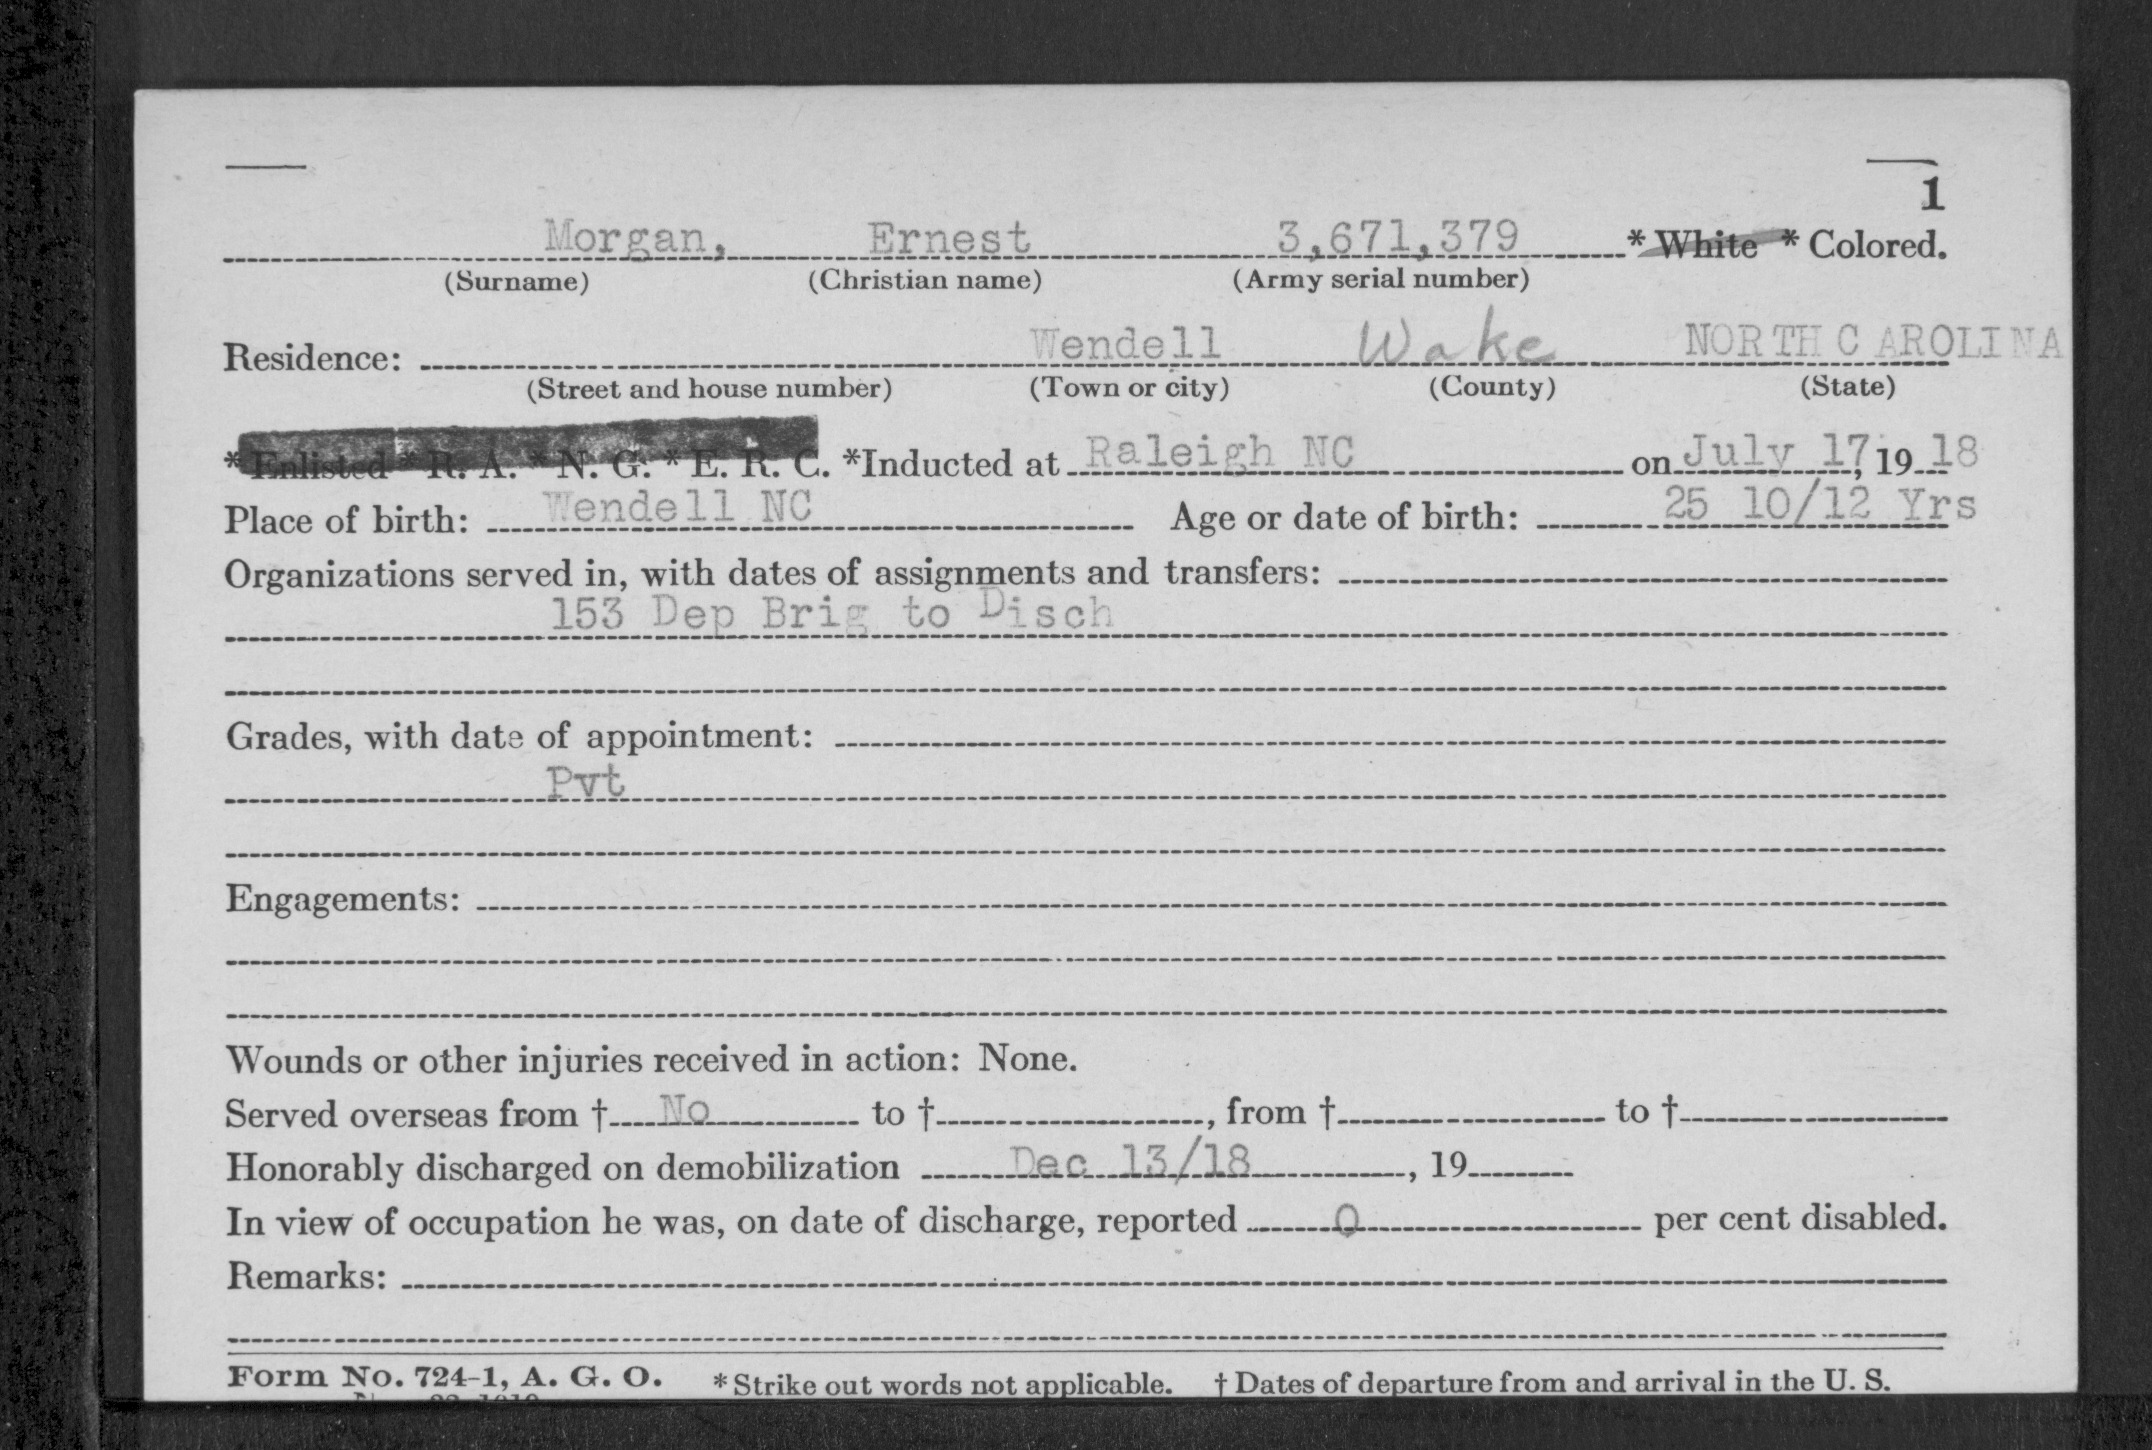 1
Morgan, Ernest 3,671,379 * White * Colored.
(Surname) (Christian name) (Army serial number)
Residence: Wendell Wake NORTH CAROLINA
(Street and house number) (Town or city) (County) (State)
* Enlisted * R. A. * N. G. * E. R. C. *Inducted at Raleigh NC on July 17, 19 18
Place of birth: Wendell NC Age or date of birth: 25 10/12 Yrs
Organizations served in, with dates of assignments and transfers:
153 Dep Brig to Disch
Grades, with date of appointment:
Pvt
Engagements:
Wounds or other injuries received in action: None.
Served overseas from † No to †, from † to †
Honorably discharged on demobilization Dec 13/18, 19
In view of occupation he was, on date of discharge, reported 0 per cent disabled.
Remarks:
Form No. 724-1, A. G. O. * Strike out words not applicable. † Dates of departure from and arrival in the U. S.